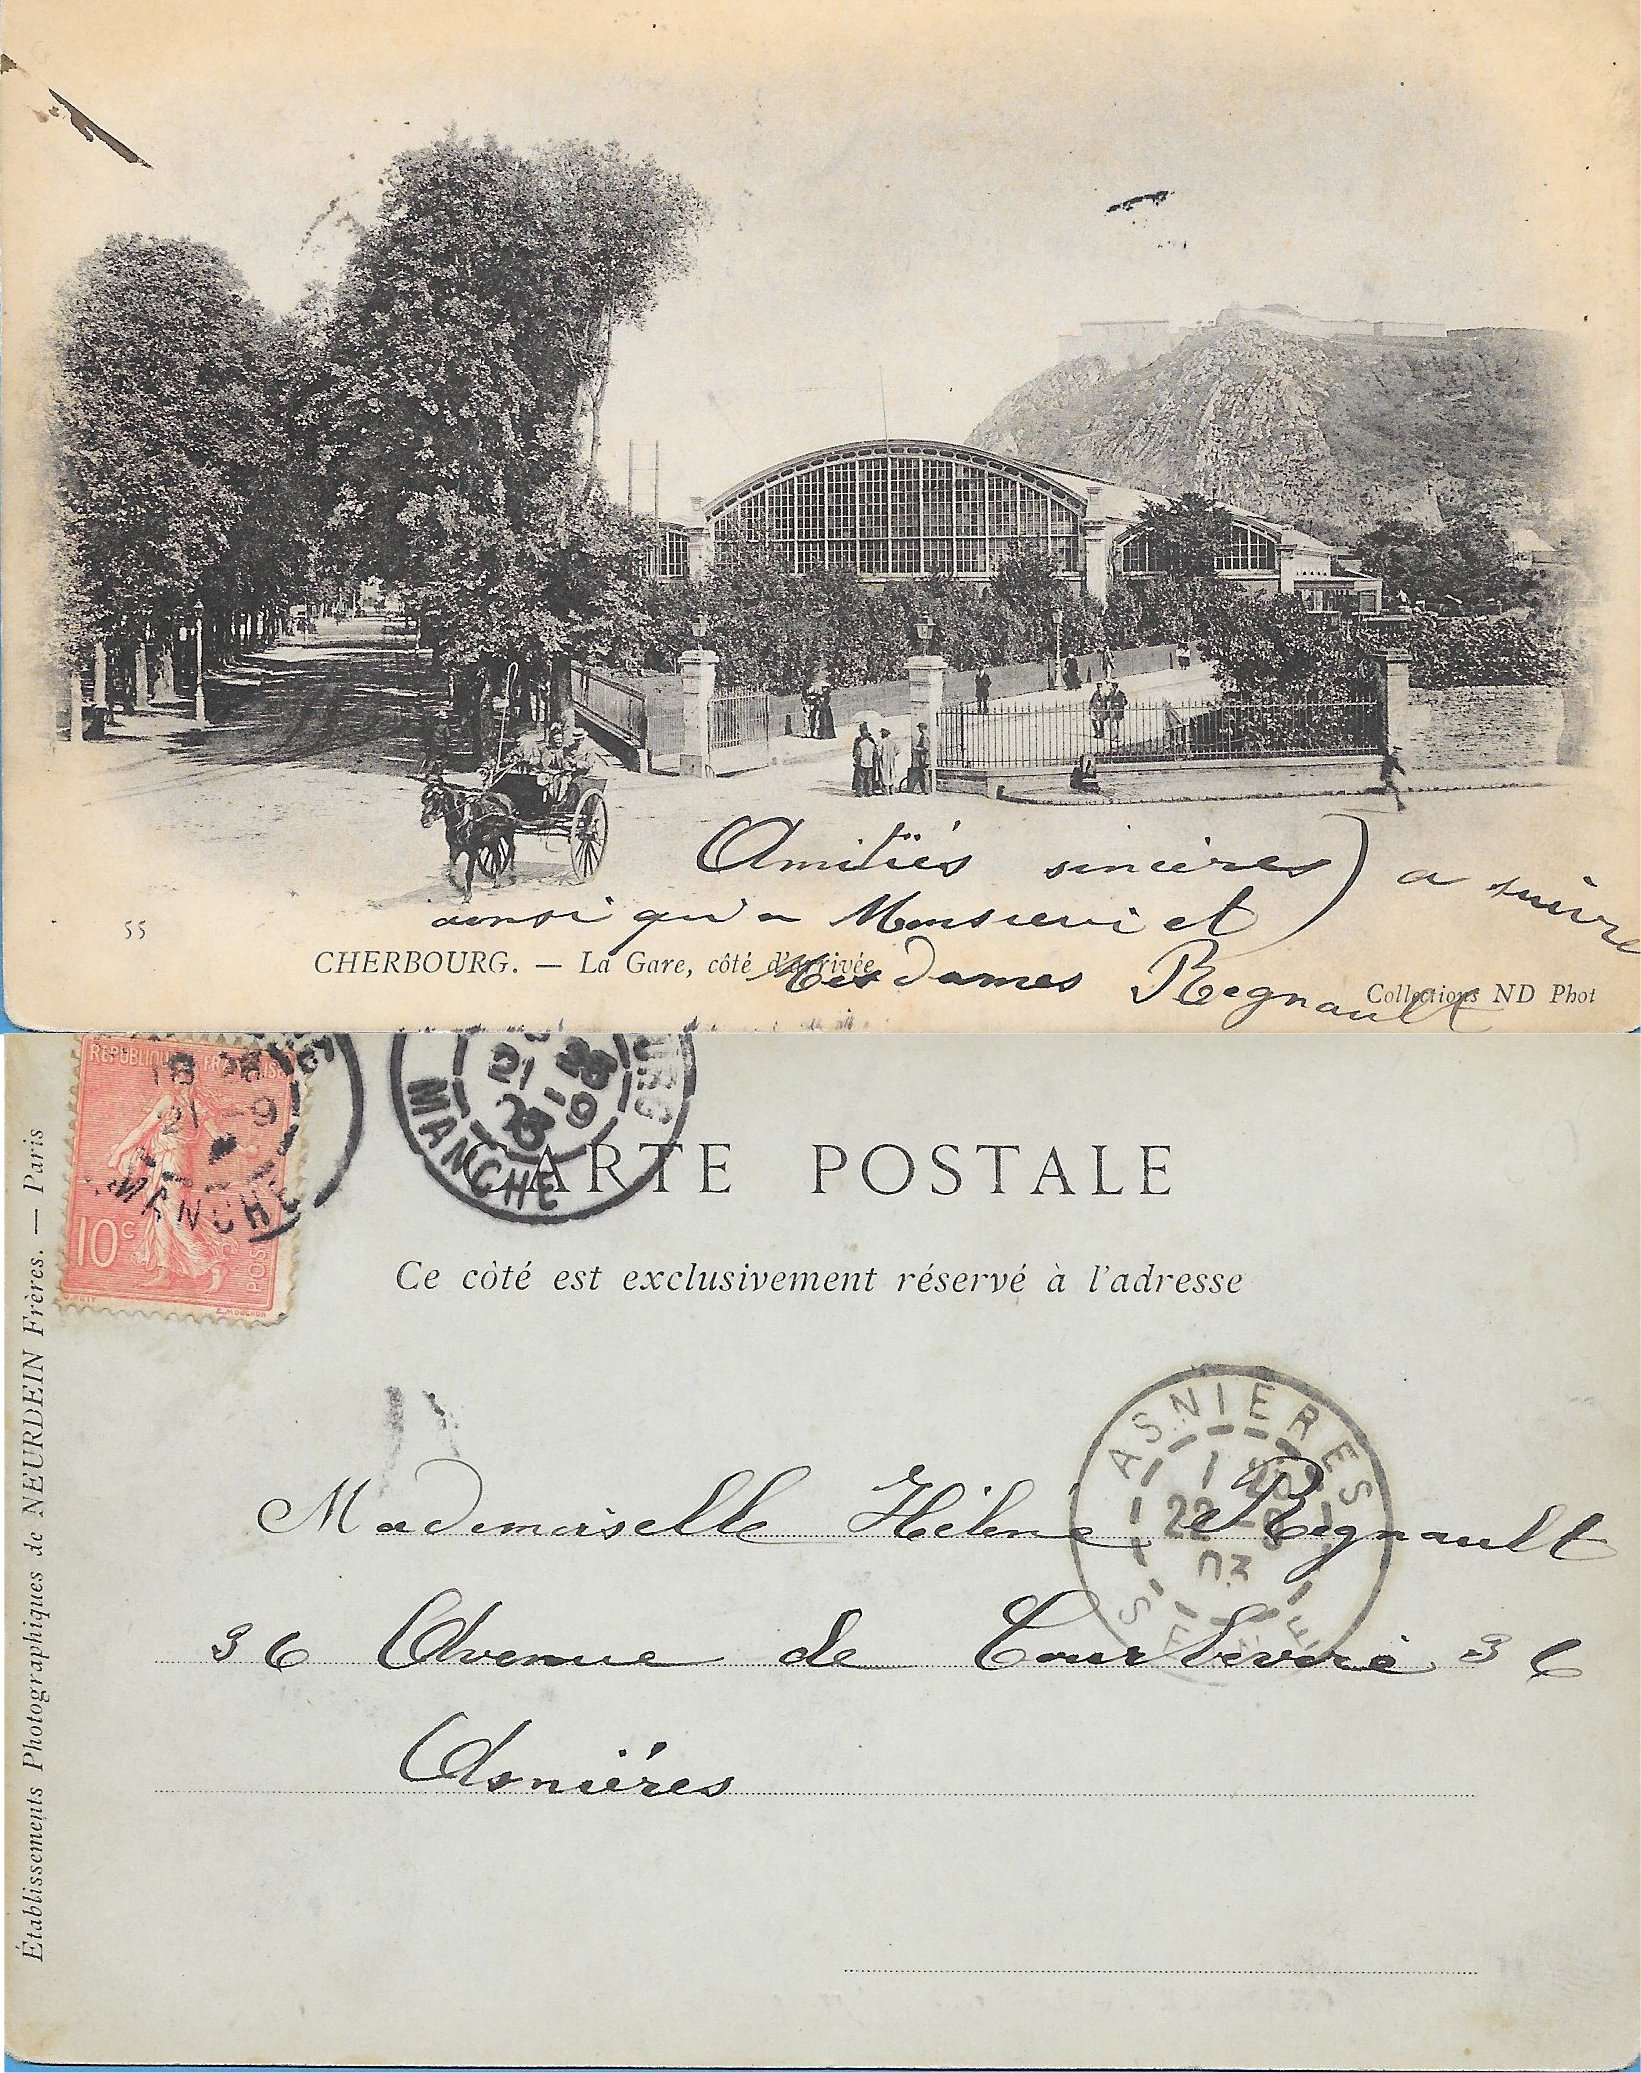 Amitiés sincères ) a suivre
ainsi qu'a Monsieur et
55
CHERBOURG. — La Gare, côté d'arrivée
Mesdames Regnault
Collections ND Phot
REPUBLIQUE FRANÇAISE
18
21 -9
MANCHE
10 c
POSTES
E. MOUCHON
21 -9
03
MANCHE
CARTE POSTALE
Ce côté est exclusivement réservé à l'adresse
Établissements Photographiques de NEURDEIN Frères. — Paris
ASNIERES
22 -9
03
SEINE
Mademoiselle Hélène Regnault
36 Avenue de Courbevoie 36
Asniéres